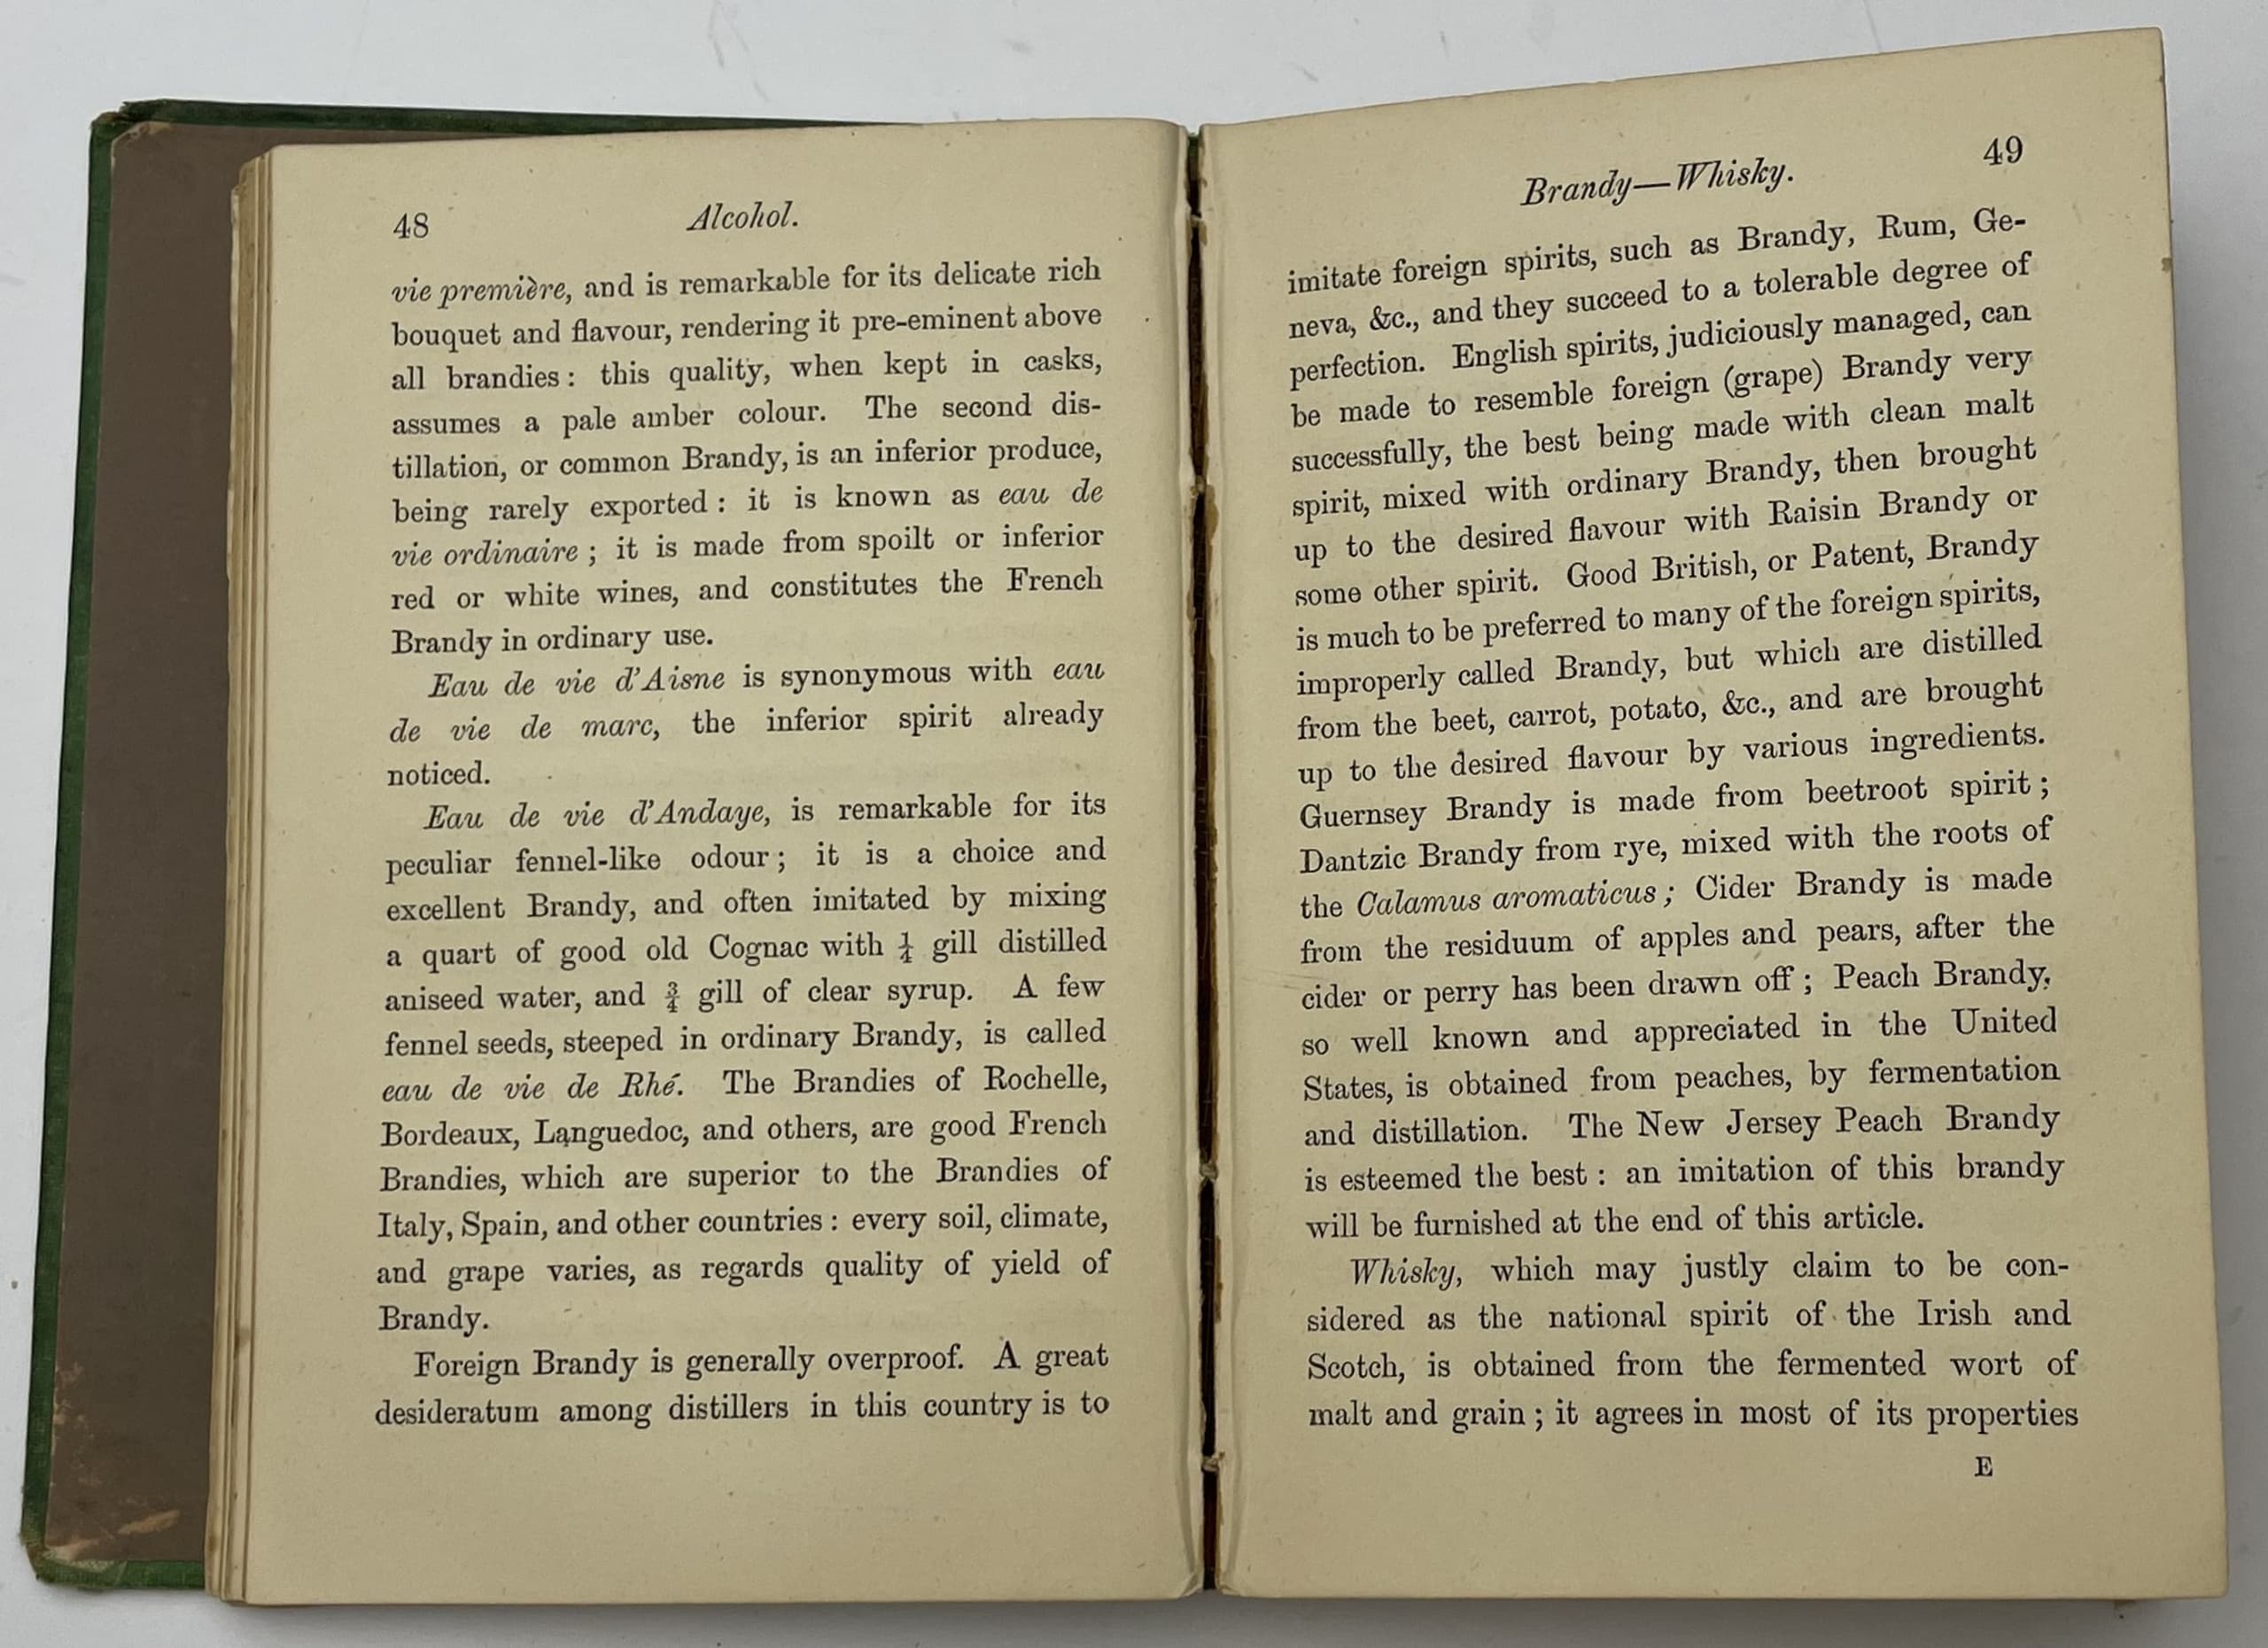 48 Alcohol.
vie première, and is remarkable for its delicate rich
bouquet and flavour, rendering it pre-eminent above
all brandies: this quality, when kept in casks,
assumes a pale amber colour. The second dis-
tillation, or common Brandy, is an inferior produce,
being rarely exported: it is known as eau de
vie ordinaire; it is made from spoilt or inferior
red or white wines, and constitutes the French
Brandy in ordinary use.
Eau de vie d'Aisne is synonymous with eau
de vie de marc, the inferior spirit already
noticed.
Eau de vie d'Andaye, is remarkable for its
peculiar fennel-like odour; it is a choice and
excellent Brandy, and often imitated by mixing
a quart of good old Cognac with ¼ gill distilled
aniseed water, and ¾ gill of clear syrup. A few
fennel seeds, steeped in ordinary Brandy, is called
eau de vie de Rhé. The Brandies of Rochelle,
Bordeaux, Languedoc, and others, are good French
Brandies, which are superior to the Brandies of
Italy, Spain, and other countries: every soil, climate,
and grape varies, as regards quality of yield of
Brandy.
Foreign Brandy is generally overproof. A great
desideratum among distillers in this country is to
Brandy—Whisky. 49
imitate foreign spirits, such as Brandy, Rum, Ge-
neva, &c., and they succeed to a tolerable degree of
perfection. English spirits, judiciously managed, can
be made to resemble foreign (grape) Brandy very
successfully, the best being made with clean malt
spirit, mixed with ordinary Brandy, then brought
up to the desired flavour with Raisin Brandy or
some other spirit. Good British, or Patent, Brandy
is much to be preferred to many of the foreign spirits,
improperly called Brandy, but which are distilled
from the beet, carrot, potato, &c., and are brought
up to the desired flavour by various ingredients.
Guernsey Brandy is made from beetroot spirit;
Dantzic Brandy from rye, mixed with the roots of
the Calamus aromaticus; Cider Brandy is made
from the residuum of apples and pears, after the
cider or perry has been drawn off; Peach Brandy,
so well known and appreciated in the United
States, is obtained from peaches, by fermentation
and distillation. The New Jersey Peach Brandy
is esteemed the best: an imitation of this brandy
will be furnished at the end of this article.
Whisky, which may justly claim to be con-
sidered as the national spirit of the Irish and
Scotch, is obtained from the fermented wort of
malt and grain; it agrees in most of its properties
E